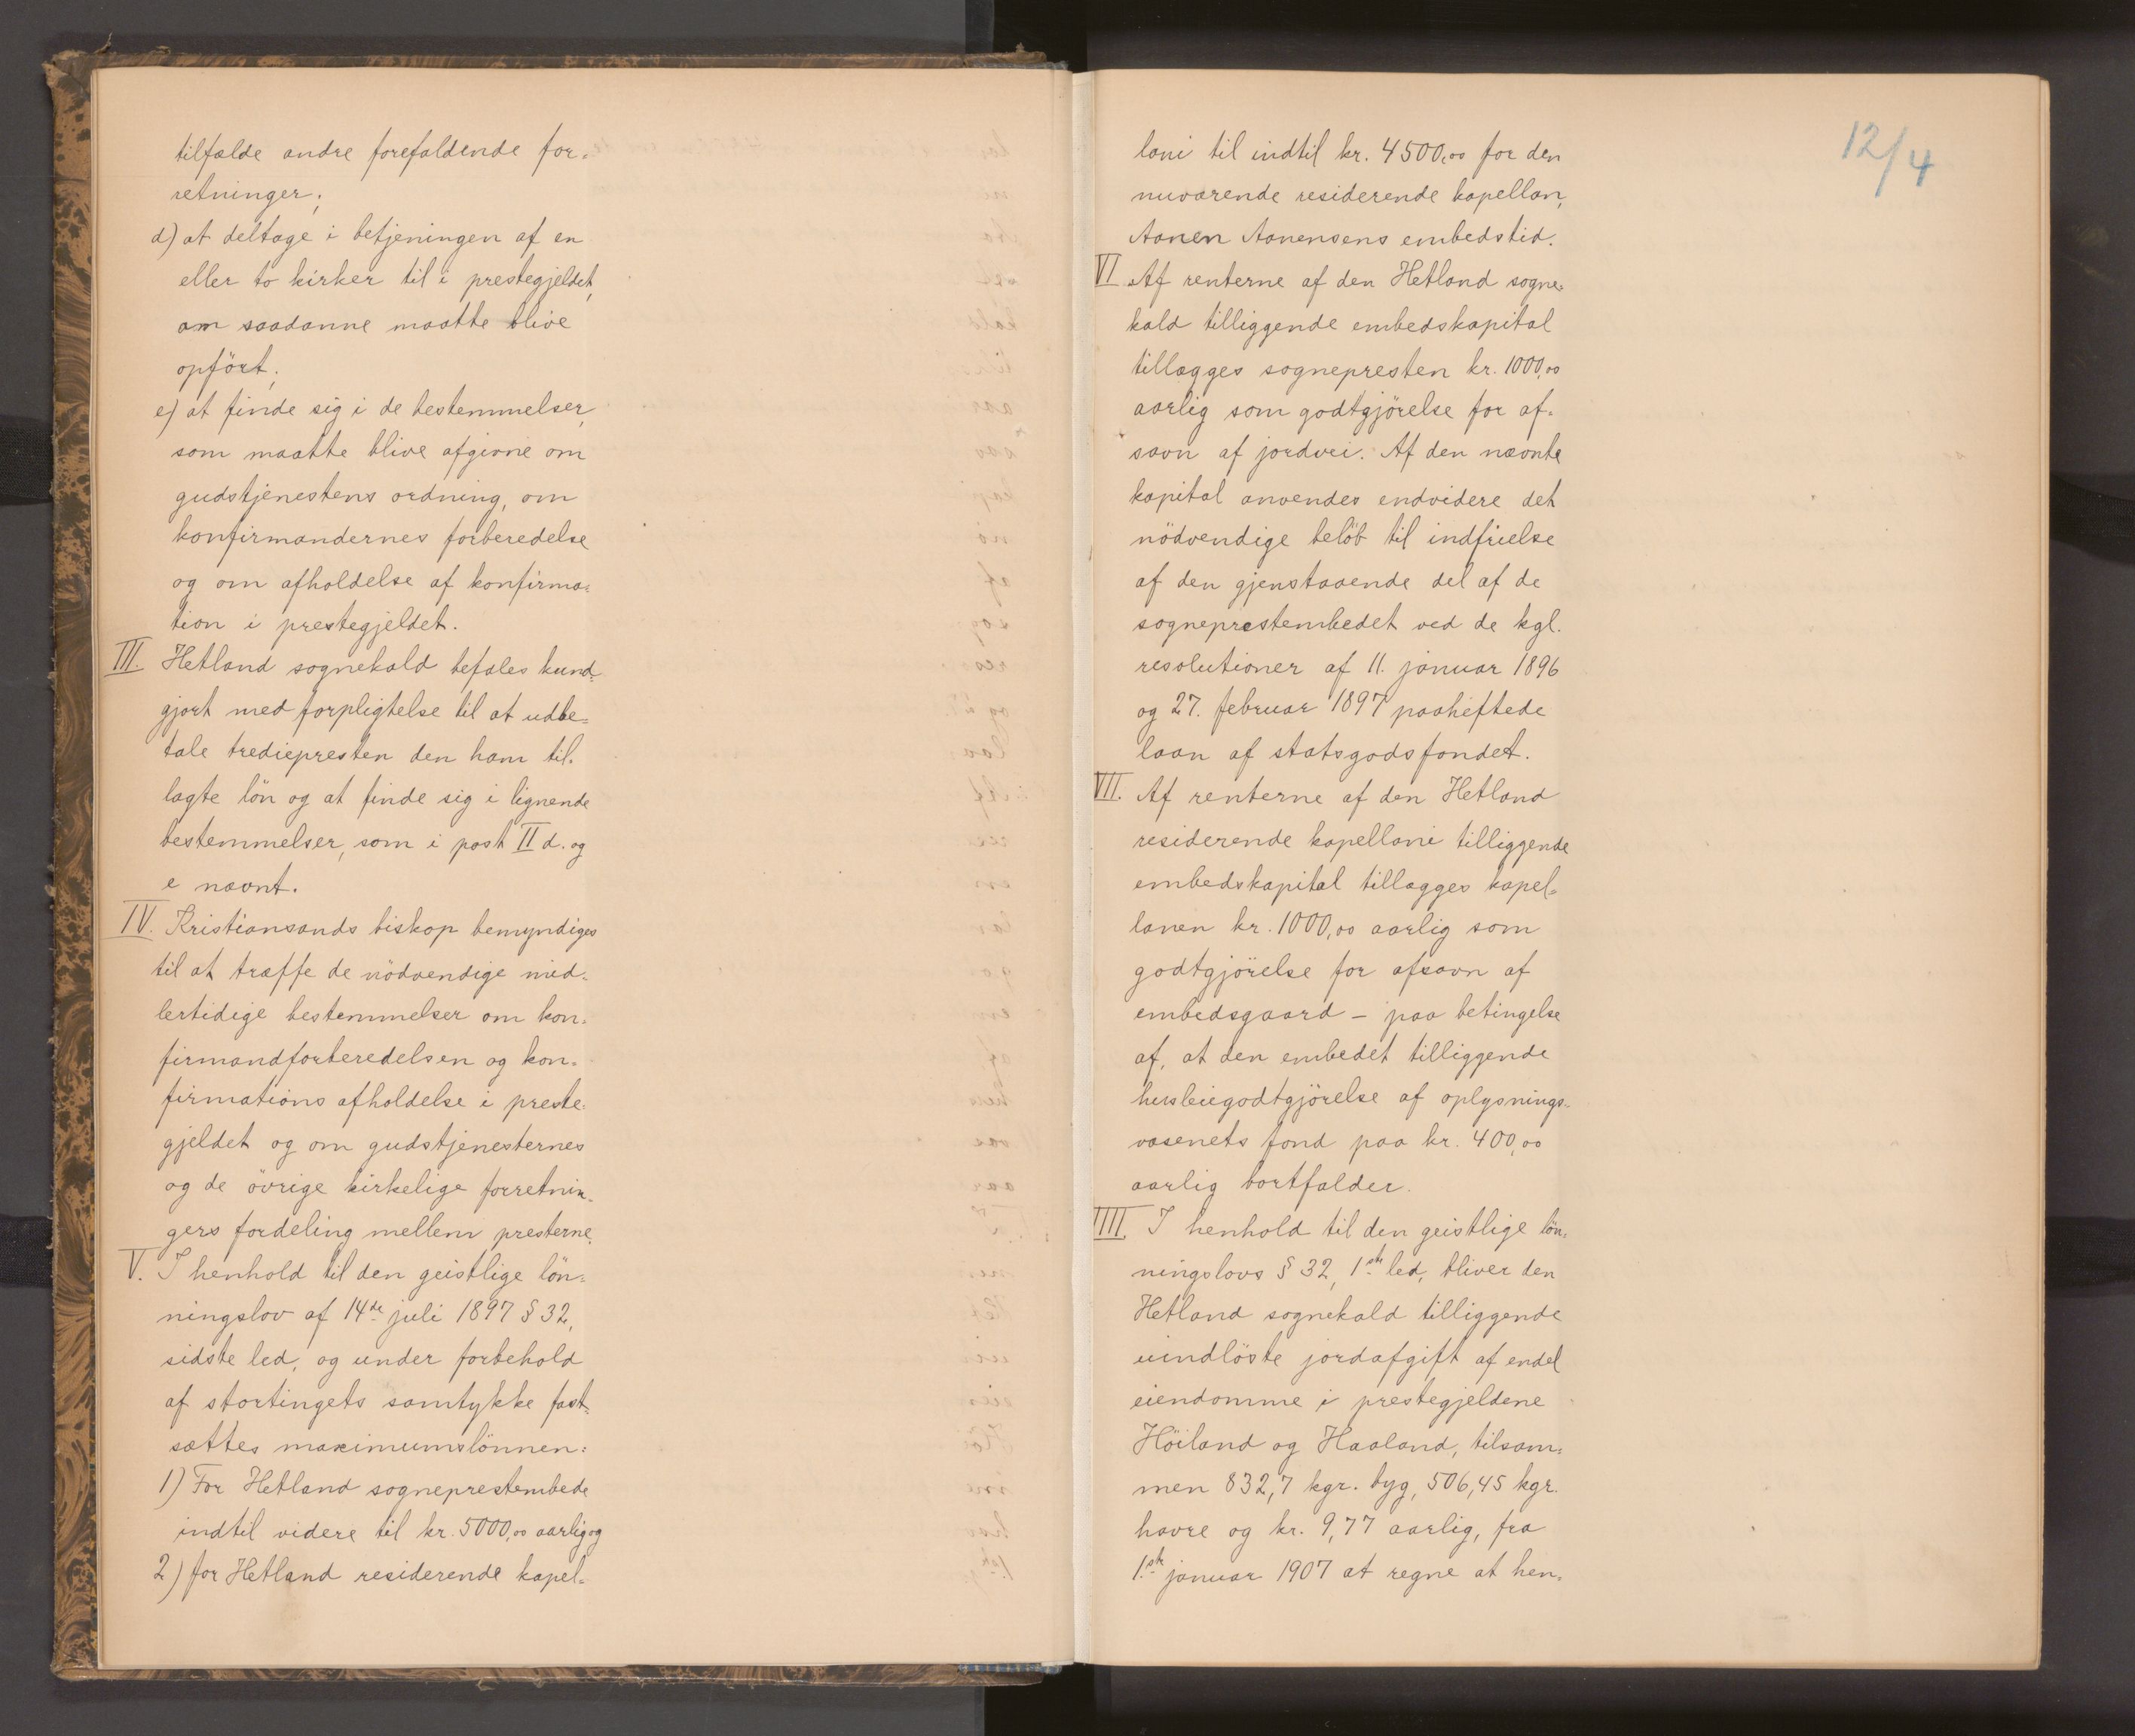 tilfælde andre forefaldende for-
retninger;
d) at deltage i betjeningen af en
eller to kirker til i prestegjeldet,
om saadanne maatte blive
opført;
e) at finde sig i de bestemmelser,
som maatte blive afgivne om
gudstjenestens ordning, om
konfirmandernes forberedelse
og om afholdelse af konfirma-
tion i prestegjeldet.
III. Hetland sognekald befales kund-
gjort med forpligtelse til at udbe-
tale trediepresten den ham til-
lagte lön og at finde sig i lignende
bestemmelser, som i post II d. og
e nævnt.
IV. Kristiansands biskop bemyndiges
til at træffe de nödvendige mid-
lertidige bestemmelser om kon-
firmandforberedelsen og kon-
firmations afholdelse i preste-
gjeldet og om gudstjenesternes
og de övrige kirkelige forretnin-
gers fordeling mellem presterne.
V. I henhold til den geistlige lön-
ningslov af 14de juli 1897 § 32,
sidste led, og under forbehold
af stortingets samtykke fast-
sættes maximumslönnen:
1) For Hetland sogneprestembede
indtil videre til kr. 5000,00 aarlig og
2) for Hetland residerende kapel-
12/4
lani til indtil kr. 4500,00 for den
nuværende residerende kapellan,
Aanen Aanensens embedstid.
VI Af renterne af den Hetland sogne-
kald tilliggende embedskapital
tillægges sognepresten kr. 1000,00
aarlig som godtgjörelse for af-
savn af jordvei. Af den nævnte
kapital anvendes endvidere det
nödvendige belöb til indfrielse
af den gjenstaaende del af de
sogneprestembedet ved de kgl.
resolutioner af 11. januar 1896
og 27. februar 1897 paaheftede
laan af statsgodsfondet.
VII. Af renterne af den Hetland
residerende kapellani tilliggende
embedskapital tillægges kapel-
lanen kr. 1000,00 aarlig som
godtgjörelse for afsavn af
embedsgaard – paa betingelse
af, at den embedet tilliggende
husleiegodtgjörelse af oplysnings-
væsenets fond paa kr. 400,00
aarlig bortfalder.
IIII. I henhold til den geistlige lön-
ningslovs § 32, 1ste led, bliver den
Hetland sognekald tilliggende
uindlöste jordafgift af endel
eiendomme i prestegjeldene
Höiland og Haaland, tilsam-
men 832,7 kgr. byg, 506,45 kgr.
havre og kr. 9,77 aarlig, fra
1ste januar 1907 at regne at hen-